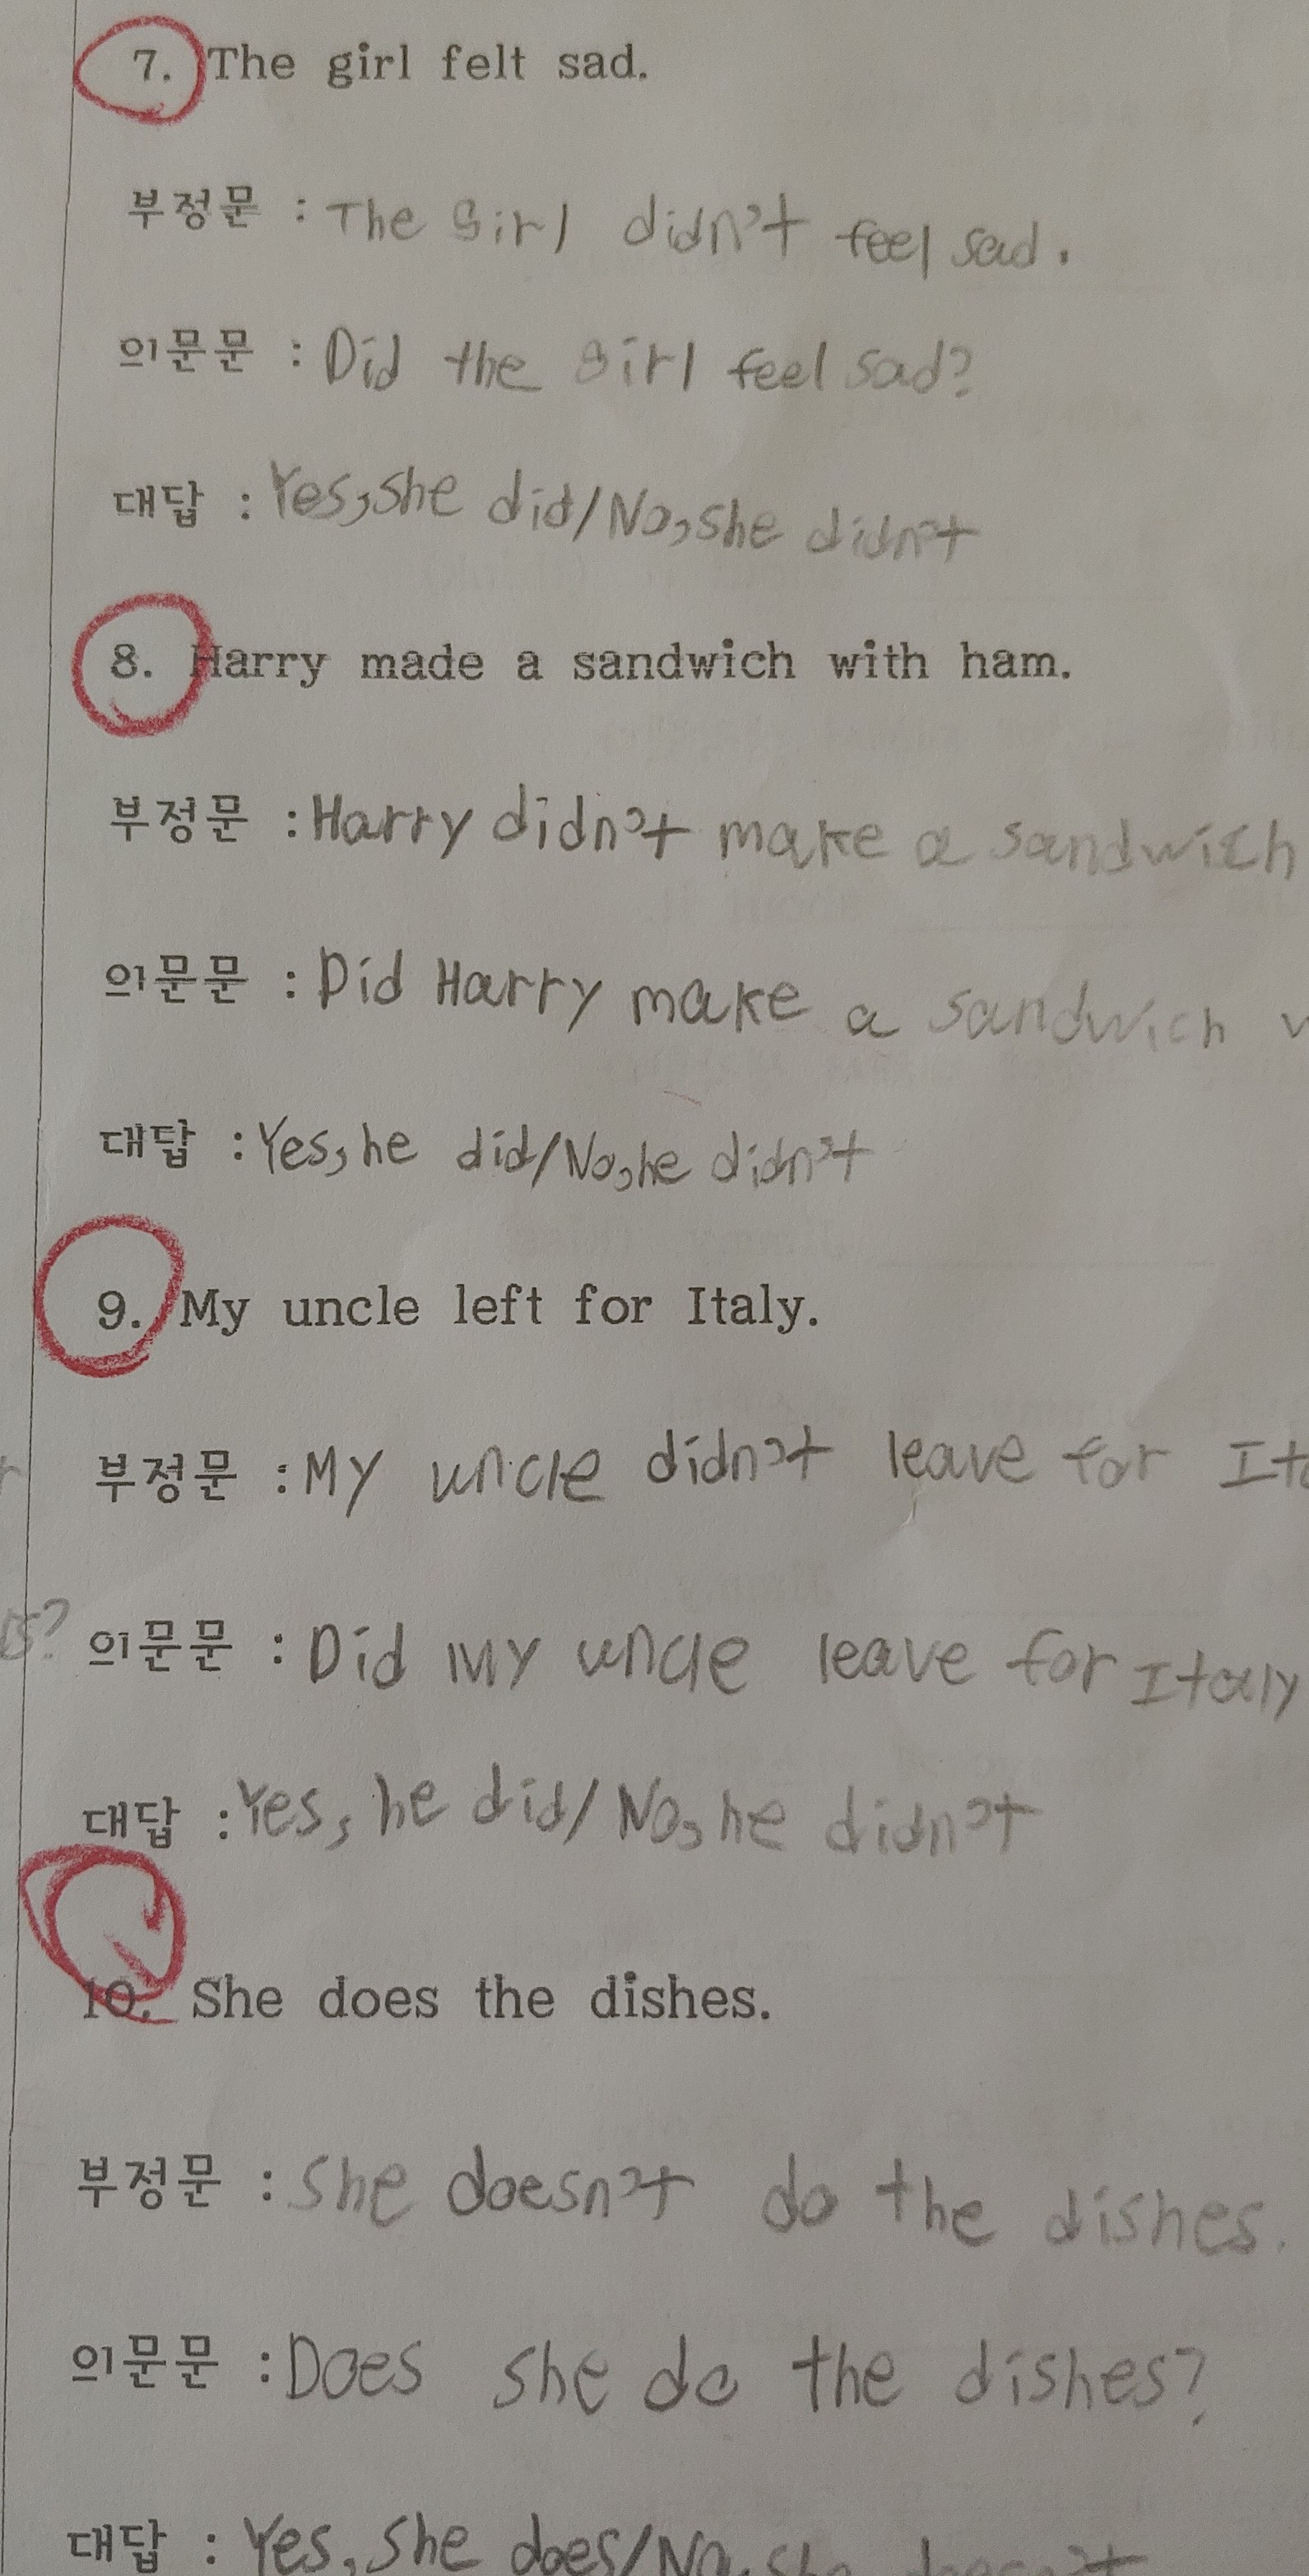 7. The girl felt sad.
부정문 : The girl didn't feel sad.
의문문 : Did the girl feel sad?
대답 : Yes, she did/No, she didn't
8. Harry made a sandwich with ham.
부정문 : Harry didn't make a sandwich
의문문 : Did Harry make a sandwich
대답 : Yes, he did/No, he didn't
9. My uncle left for Italy.
부정문 : My uncle didn't leave for
의문문 : Did my uncle leave for Italy
대답 : Yes, he did/No, he didn't
10. She does the dishes.
부정문 : She doesn't do the dishes.
의문문 : Does she do the dishes?
대답 : Yes, she does/No, she doesn't